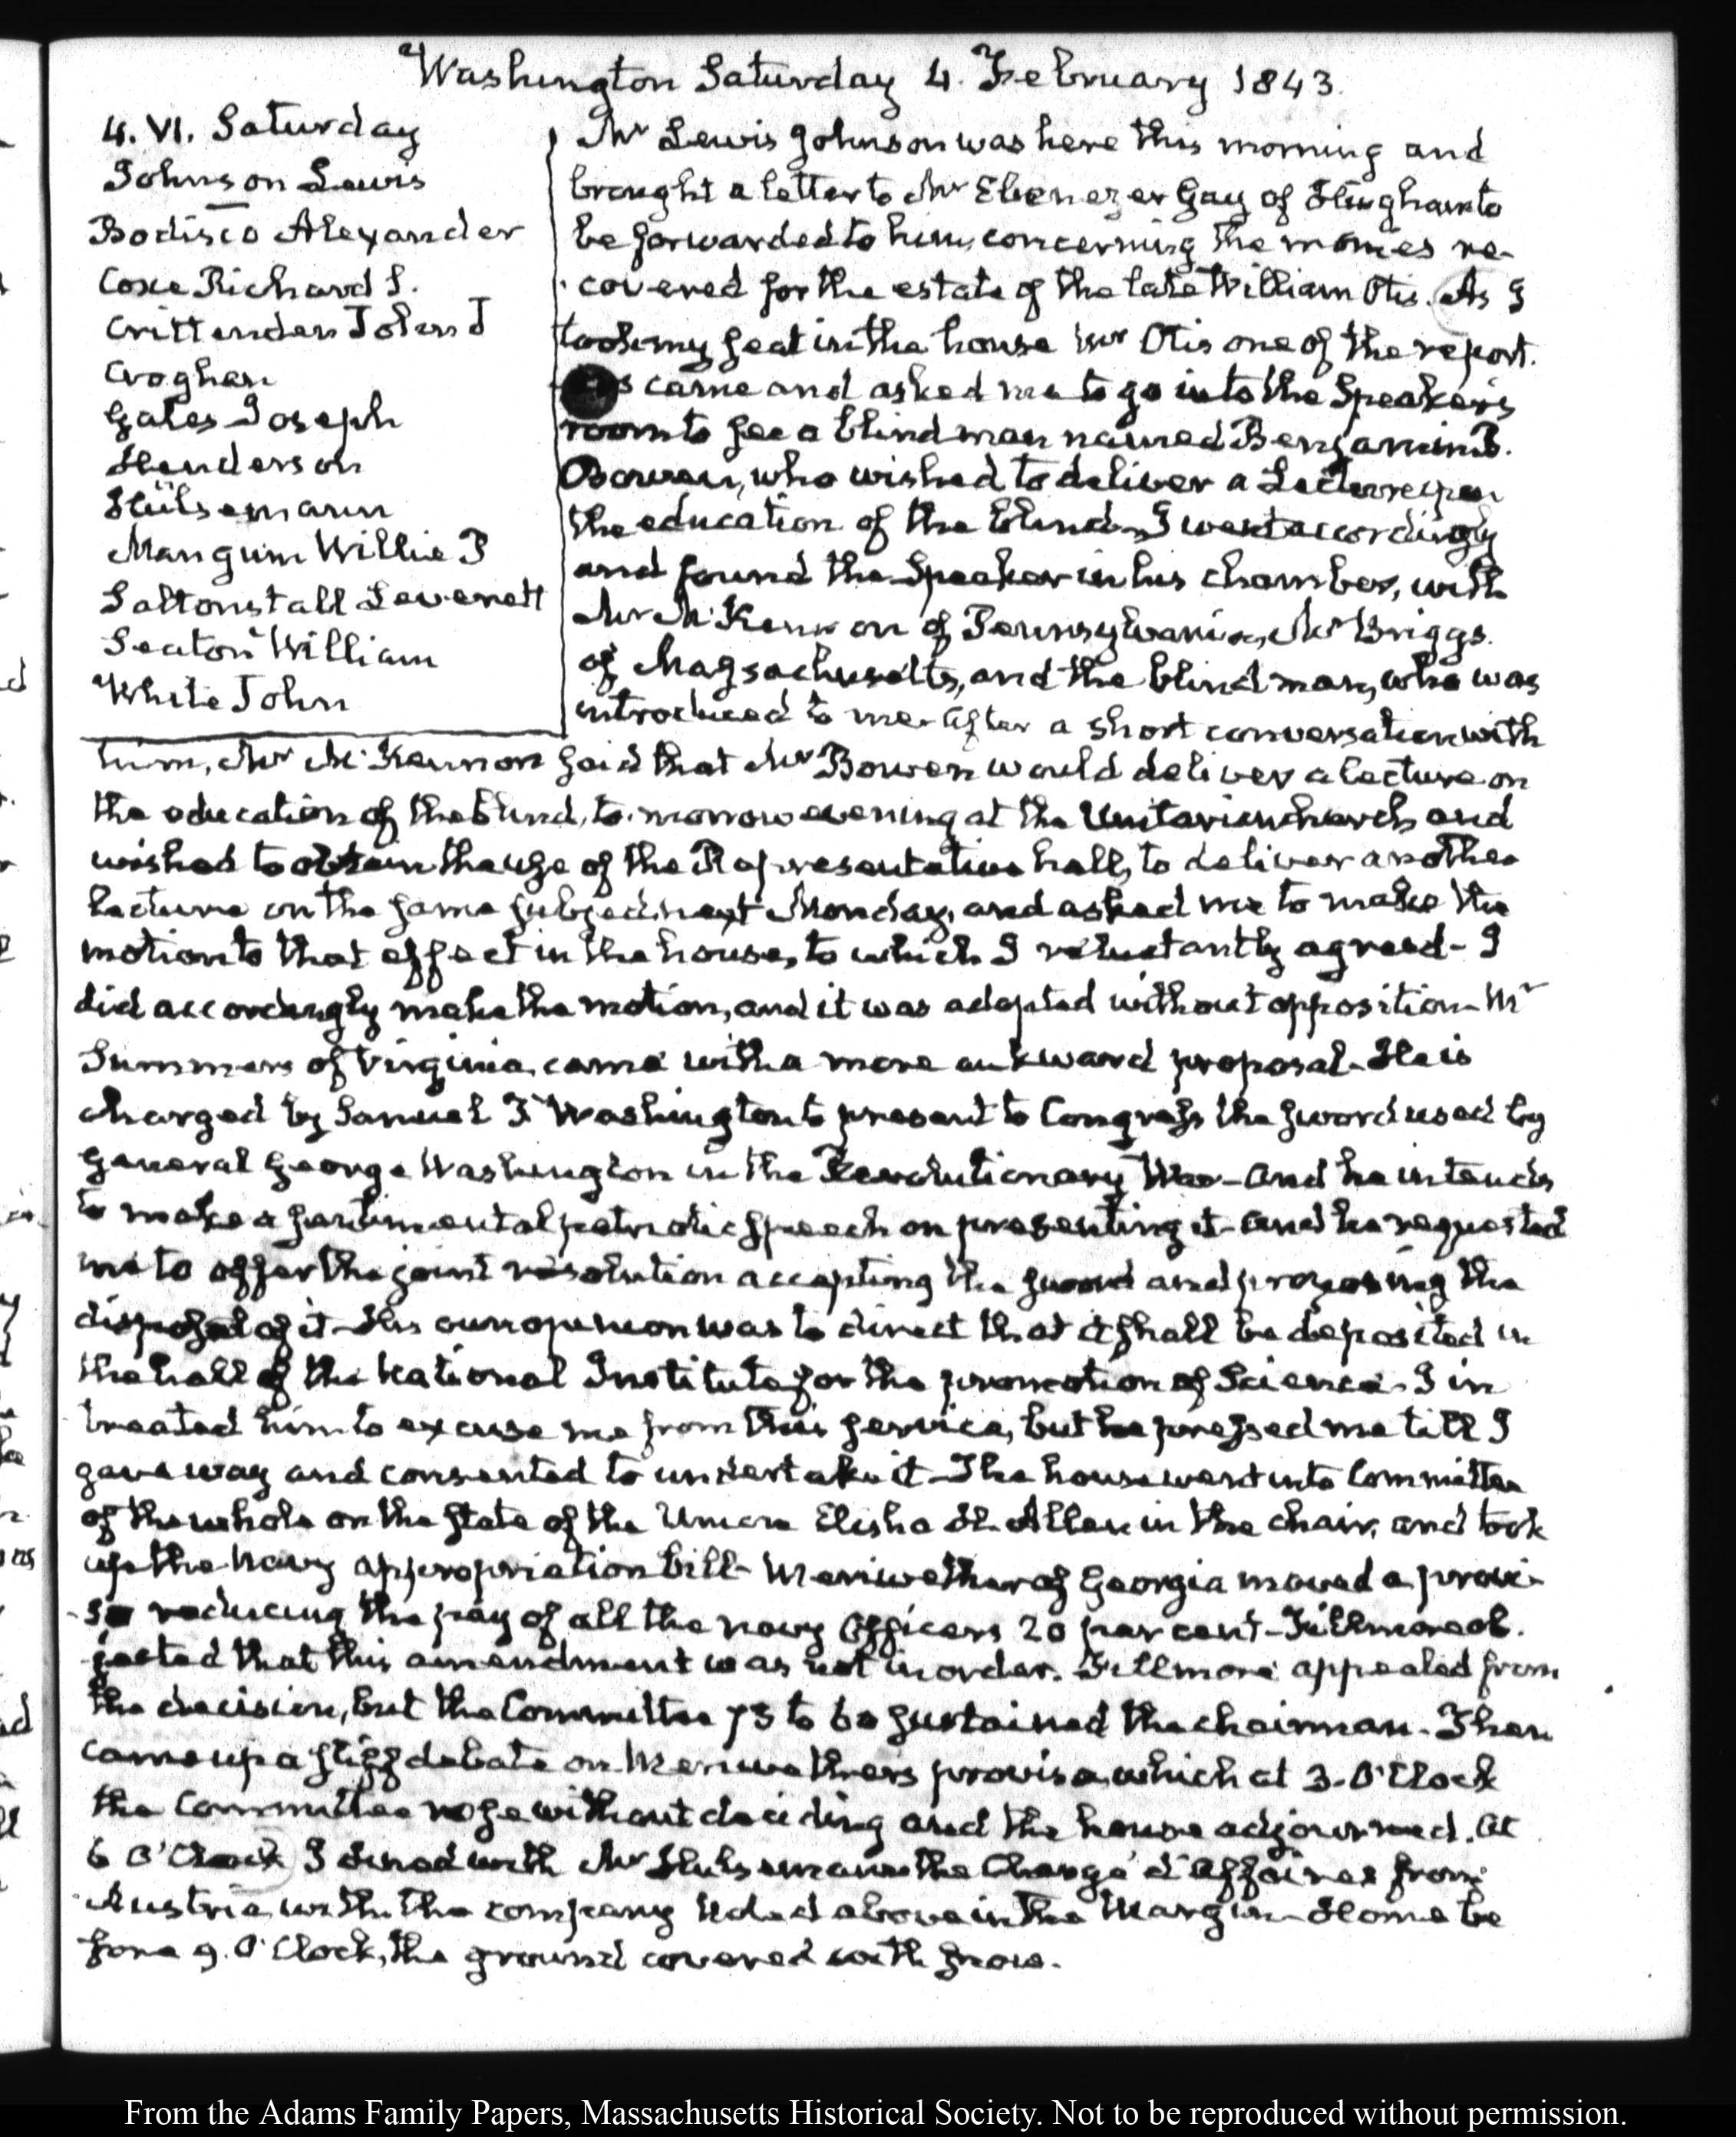 Washington Saturday 4. February 1843.
4. VI. Saturday
Johnson Lewis
Bodisco Alexander
Coxe Richard S.
Crittenden John J
Croghan
Gales Joseph
Henderson
Hülsemann
Mangum Willie P
Saltonstall Leverett
Seaton William
White John
Mr Lewis Johnson was here this morning and
brought a letter to Mr Ebenezer Gay of Hingham to
be forwarded to him, concerning the monies re-
covered for the estate of the late William Otis. As I
took my seat in the house Mr Otis one of the report.
ers came and asked me to go into the Speaker's
room to see a blind man named Benjamin B.
Bowen, who wished to deliver a Lecture upon
the education of the blind. I went accordingly
and found the Speaker in his chamber, with
Mr McKennon of Pennsylvania, Mr Briggs.
of Massachusetts, and the blind man, who was
introduced to me. After a short conversation with
him, Mr McKennon said that Mr Bowen would deliver a lecture on
the education of the blind, to-morrow evening at the Unitarian church and
wished to obtain the use of the Representative hall, to deliver another
lecture on the same subject, next Monday, and asked me to make the
motion to that effect in the house, to which I reluctantly agreed - I
did accordingly make the motion, and it was adopted without opposition - Mr
Summers of Virginia, came with a more aukward proposal - He is
charged by Samuel T Washington to present to Congress the sword used by
General George Washington in the Revolutionary War - and he intends
to make a sentimental patriotic speech on presenting it - and he requested
me to offer the joint resolution accepting the sword and proposing the
disposal of it - His own opinion was to direct that it shall be deposited in
the hall of the National Institute for the promotion of Science - I in
treated him to excuse me from this service, but he pressed me till I
gave way and consented to undertake it - The house went into Committee
of the whole on the state of the Union Elisha H. Allen in the chair, and took
up the Navy appropriation bill - Meriwether of Georgia moved a provi-
so reducing the pay of all the navy Officers 20 per cent - Fillmore ob.
jected that this amendment was not in order. Fillmore appealed from
the decision, but the Committee 73 to 60 sustained the chairman - Then
came up a stiff debate on Meriwether's proviso, which at 3. O'Clock
the Committee rose without deciding and the house adjourned. At
6 O'Clock I dined with Mr Hulsemann the Chargé d'Affaires from
Austria, with the company noted above in the Margin - Home be
fore 9. O'Clock, the ground covered with snow.
From the Adams Family Papers, Massachusetts Historical Society. Not to be reproduced without permission.